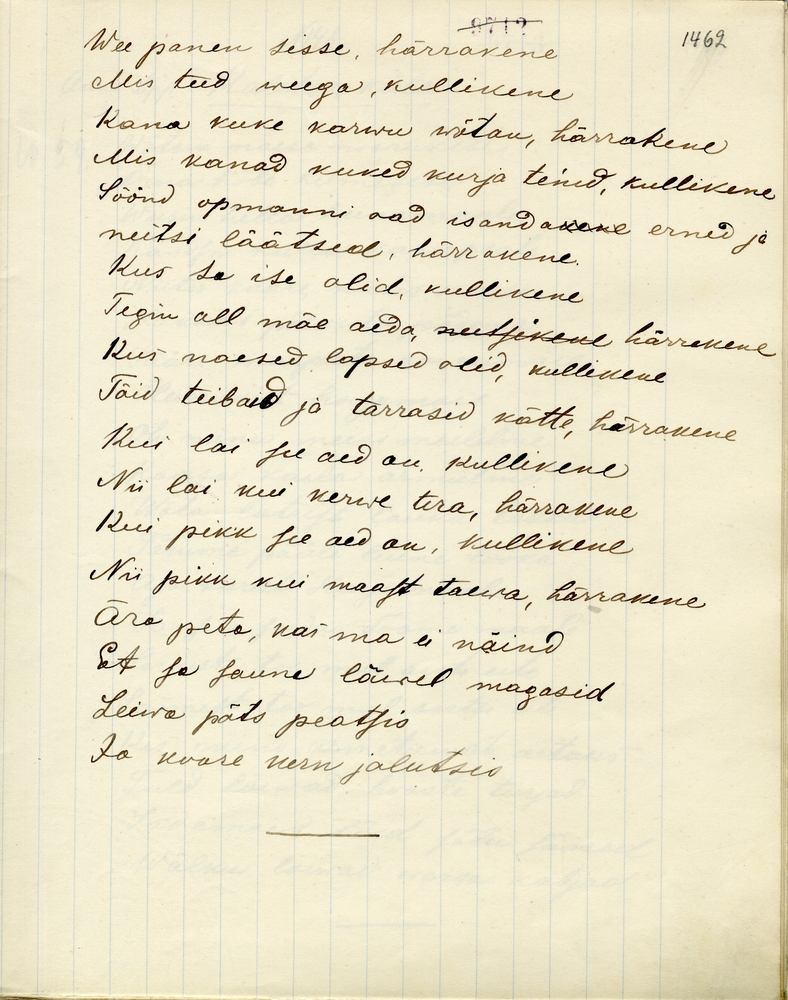 9712
1462
Wee panen sisse, härrakene
Mis teed weega, kullikene
Kana kuke karwu wõtan, härrakene
Mis kanad kuked kurja teind, kullikene
Söönd opmanni oad isandakene erned ja
neitsi läätsed, härrakene.
Kus sa ise olid, kullikene
Tegin all mäe aeda, neitsikene härrakene
Kus naesed lapsed olid, kullikene
Tõid teibaid ja tarrasid kätte, härrakene
Kui lai see aed on, kullikene
Nii lai kui kerwe tera, härrakene
Kui pikk see aed on, kullikene
Nii pikk kui maast taewa, härrakene
Ära peta, kas ma ei näind
Et sa sauna läwel magasid
Leiwa päts peatsis
Ja koore kern jalutsis